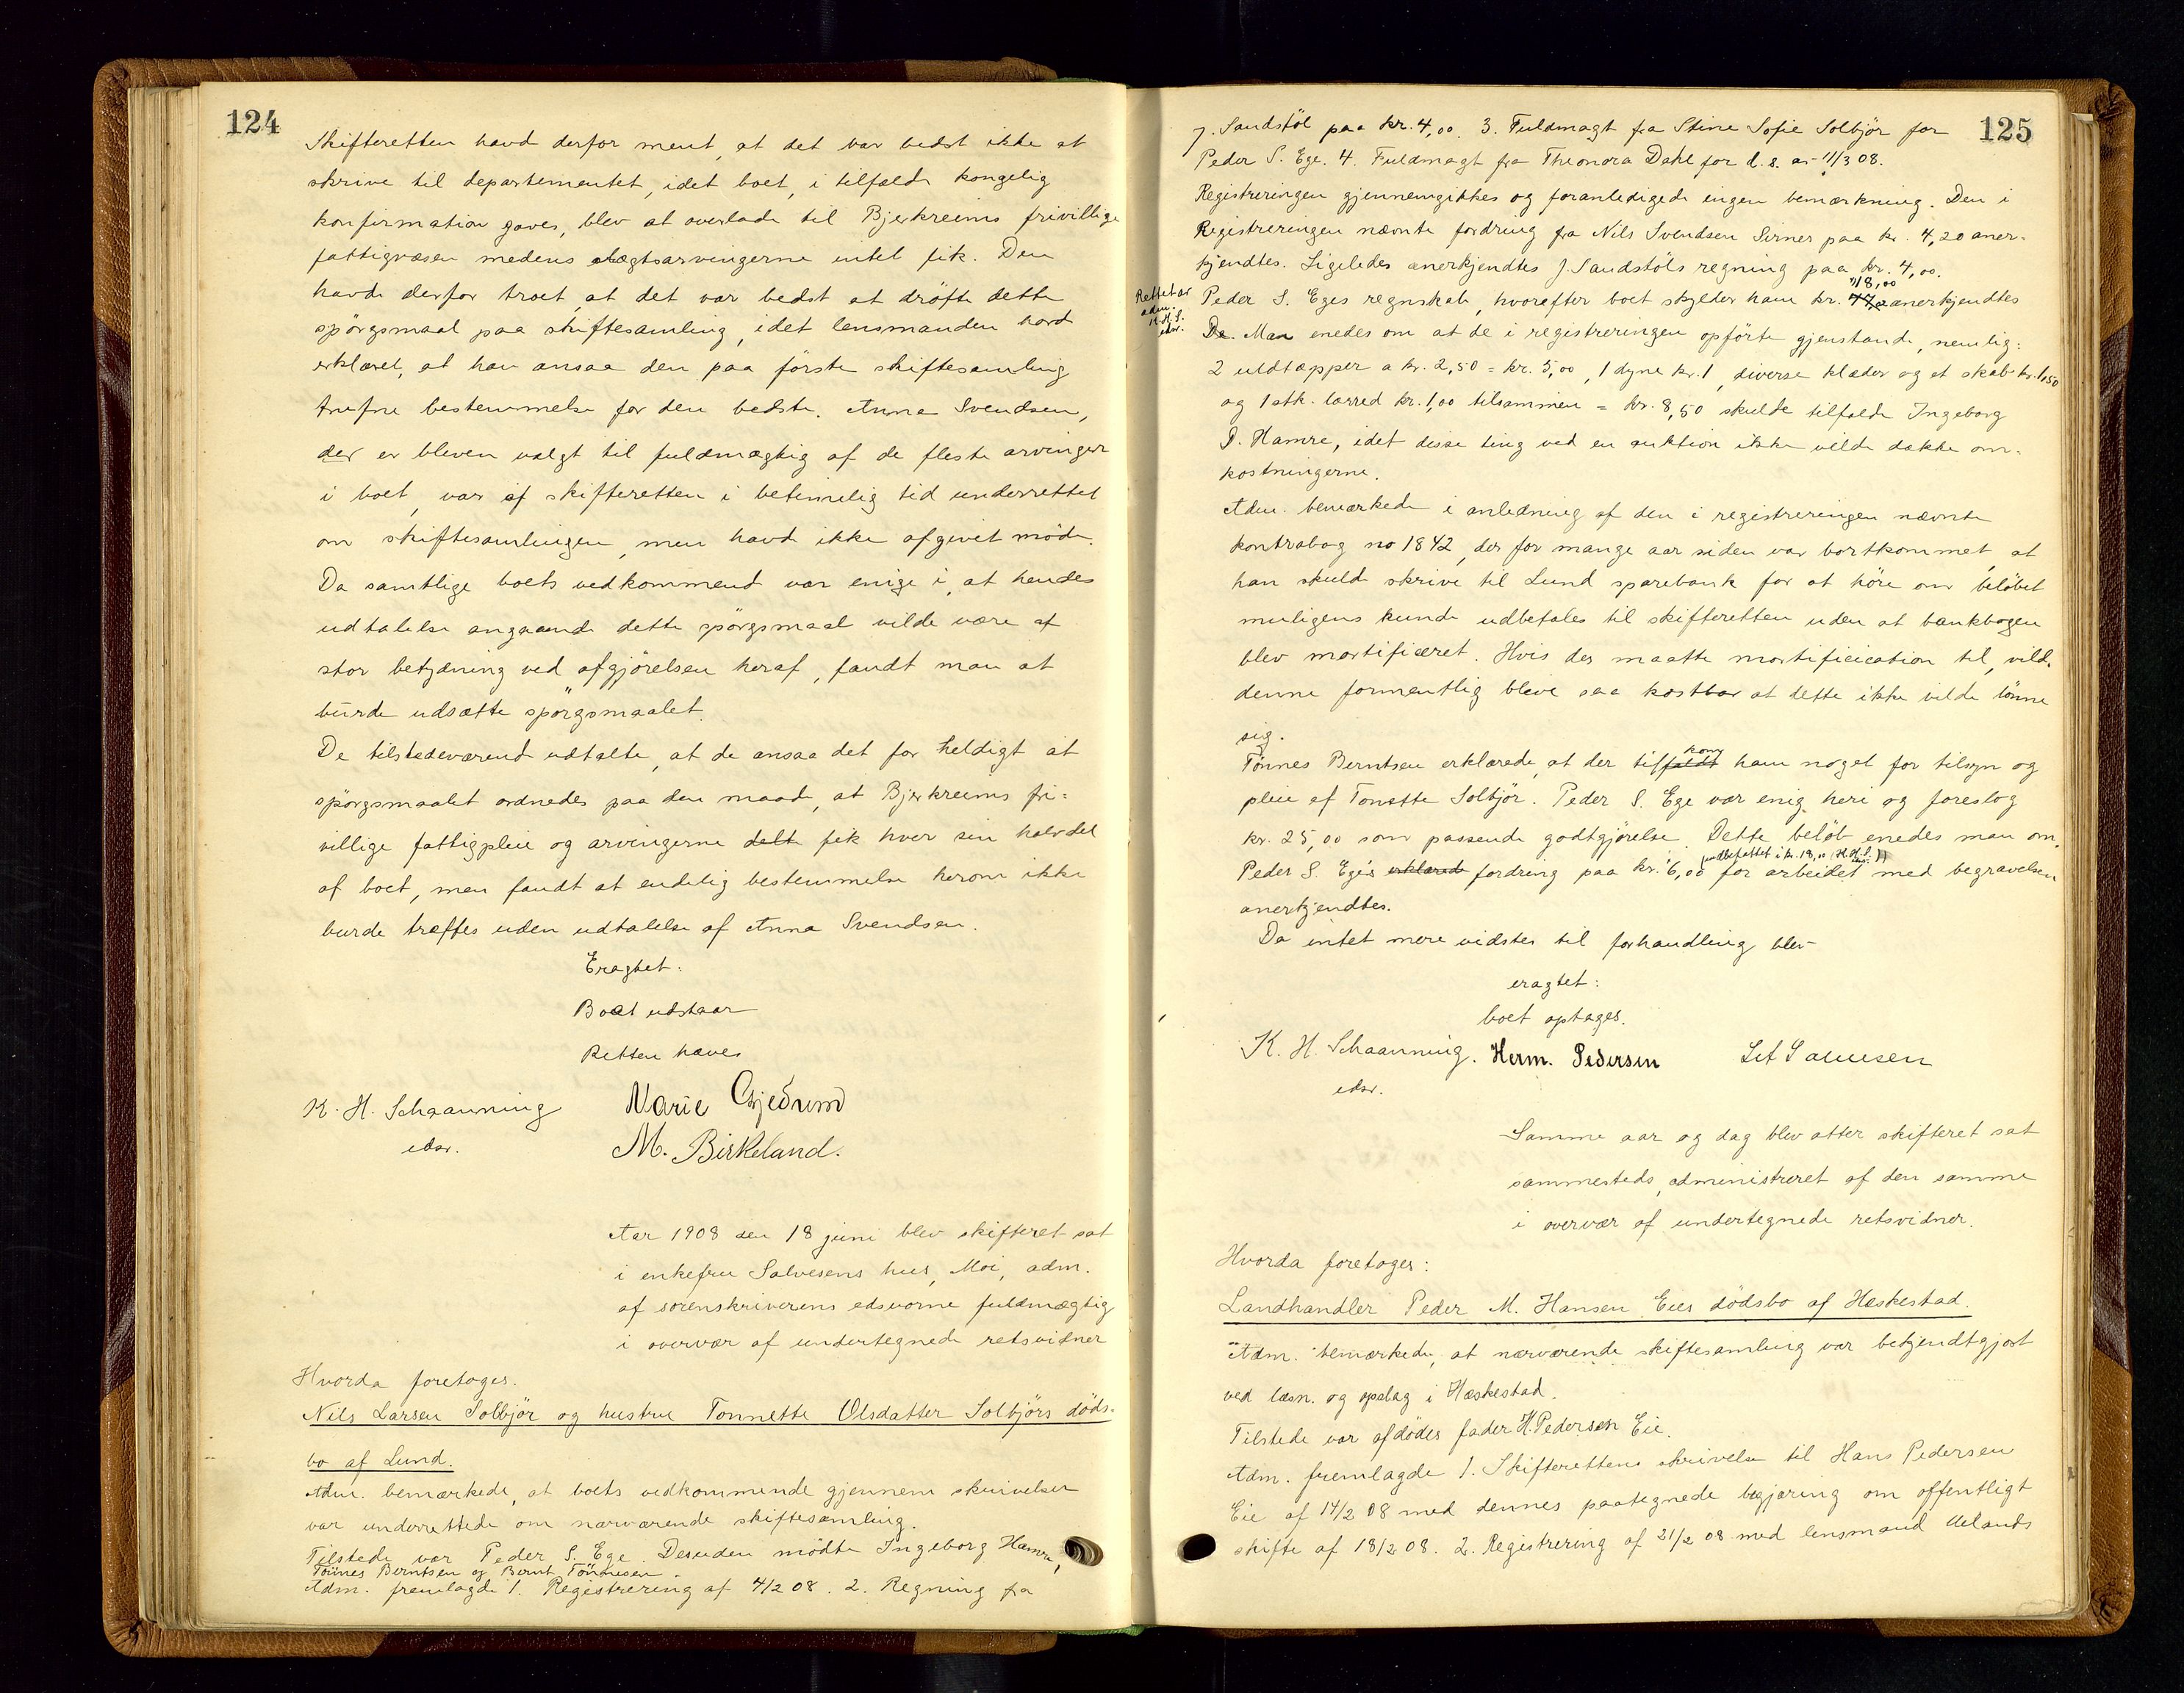 124
Skifteretten havd derfor ment, at det var bedst ikke at
skrive til departementet, idet boet, i tilfælde kongelig
konfirmation gaves, blev at overlade til Bjerkreims frivillige
fattigvæsen medens slægtsarvingerne intet fik. Den
havde derfor troet, at det var bedst at dröfte dette
spörgsmaal paa skiftesamling, idet lensmanden havd
erklæret, at han ansaa den paa förste skiftesamling
trufne bestemmelse for den bedste. Anna Svendsen,
der er bleven valgt til fuldmægtig af de fleste arvinger
i boet, var af skifteretten i betimelig tid underrettet
om skiftesamlingen, men havd ikke afgivet möde.
Da samtlige boets vedkommend var enige i, at hendes
udtalelse angaaende dette spörgsmaal vilde være af
stor betydning ved afgjörelsen heraf, fandt man at
burde udsætte spörgsmaalet.
De tilstedeværend udtalte, at de ansaa det for heldigt at
spörgsmaalet ordnedes paa den maade, at Bjerkreims fri=
villige fattigpleie og arvingerne delt fik hver sin halvdel
af boet, men fandt at endelig bestemmelse herom ikke
burde træffes uden udtalelse af Anna Svendsen.
Eragtet:
Boet udstaar
Retten hæves
K. H. Schaanning Marie Gjedrem
edsv. M. Birkeland.
Aar 1908 den 18 juni blev skifteret sat
i enkefru Salvesens hus, Moi, adm.
af sorenskriverens edsvorne fuldmægtig
i overvær af undertegnede retsvidner
Hvorda foretoges.
Nils Larsen Solbjör og hustru Tonnette Olsdatter Solbjörs döds-
bo af Lund.
Adm. bemærkede, at boets vedkommende gjennem skrivelser
var underrettede om nærværende skiftesamling.
Tilstede var Peder S. Ege. Desuden mödte Ingeborg Hamre,
Tönnes Berntsen og Bernt Tönnesen.
Adm. fremlagde 1. Registrering af 4/2 08. 2. Regning fra
125
J. Sandstöl paa kr. 4,00. 3. Fuldmagt fra Stine Sofie Solbjör for
Peder S. Ege. 4. Fuldmagt fra Theonora Dahl for d. s. af 11/3 08.
Registreringen gjennemgikkes og foranledigede ingen bemærkning. Den i
Registreringen nævnte fordring fra Nils Svendsen Sirnes paa kr. 4,20 aner-
kjendtes. Ligeledes anerkjendtes J. Sandstöls regning paa kr. 4,00.
Rettet av
adm.
K.H.S.
edsv.
18,00
Peder S. Eges regnskab, hvorefter boet skylder ham kr. anerkjendtes
De Man enedes om at de i registreringen opförte gjenstande, nemlig:
2 uldtæpper a kr. 2,50 = kr. 5,00, 1 dyne kr. 1, diverse klæder og et skab kr. 1,50
og 1 stk. lærred kr. 1,00 tilsammen = kr. 8,50 skulde tilfalde Ingeborg
P. Hamre, idet disse ting ved en auktion ikke vilde dække om-
kostningerne.
Adm. bemærkede i anledning af den i registreringen nævnte
kontrabog no 1842, der for mange aar siden var bortkommet, at
han skulde skrive til Lund sparebank for at höre om belöbet
muligens kunde udbetales til skifteretten uden at bankbogen
blev mortificeret. Hvis der maatte mortificication til, vilde
denne formentlig blive saa kostbar at dette ikke vilde lönne
sig.
kom
Tönnes Berntsen erklærede, at der tilfaldt ham noget for tilsyn og
pleie af Tonette Solbjör. Peder S. Ege var enig heri og foreslog
kr. 25,00 som passende godtgjörelse. Dette belöb enedes man om.
(indbefattet i kr. 18,00 K.H.S. edsv.)
Peder S. Ege's erklærede fordring paa kr. 6,00 for arbeidet med begravelsen
anerkjendtes.
Da intet mere vidstes til forhandling blev
eragtet:
boet optages.
K. H. Schaanning. Herm. Pedersen
edsv.
Samme aar og dag blev atter skifteret sat
sammesteds, administreret af den samme
i overvær af undertegnede retsvidner.
Hvorda foretoges:
Landhandler Peder M. Hansen Eies dödsbo af Heskestad.
Adm. bemærkede, at nærværende skiftesamling var bekjendtgjort
ved læsn. og opslag i Heskestad.
Tilstede var afdödes fader H. Pedersen Eie.
Adm. fremlagde 1. Skifterettens skrivelse til Hans Pedersen
Eie af 14/2 08 med dennes paategnede begjæring om offentligt
skifte af 18/2 08. 2. Registrering af 21/2 08 med lensmand Uelands